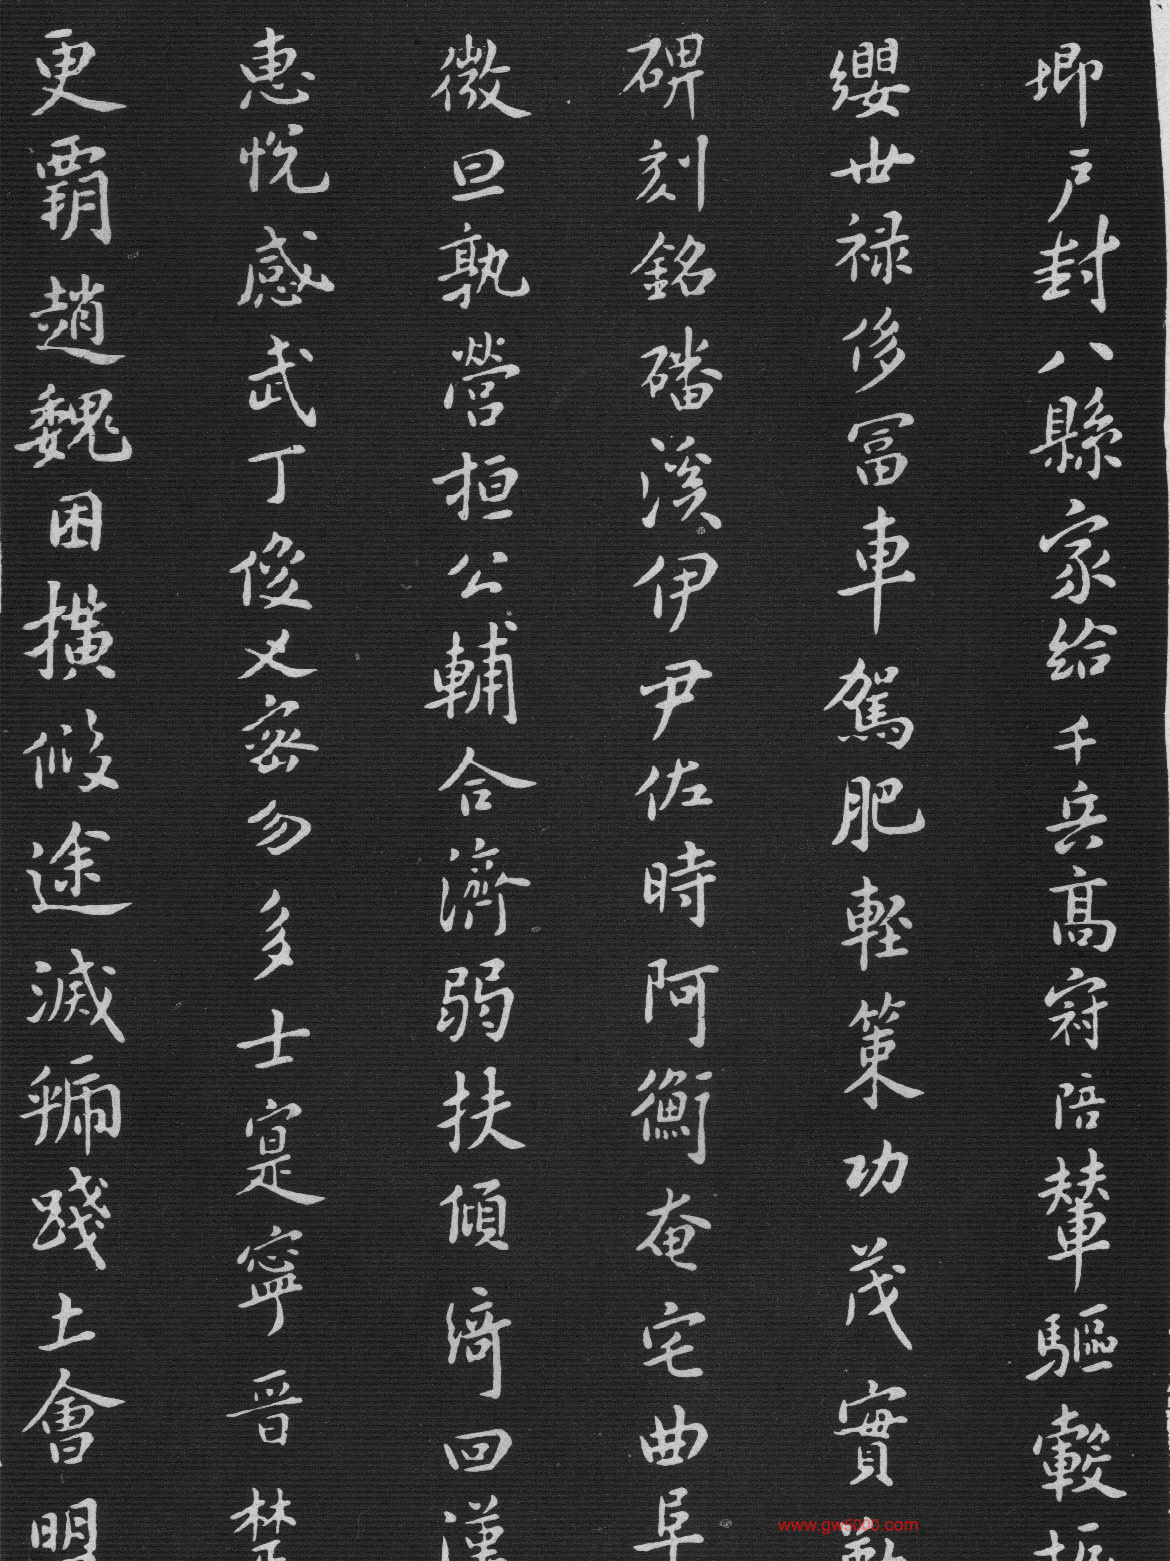 卿户封八縣家給千兵高冠陪輦驅轂振
纓世禄侈富車駕肥輕策功茂實勒
碑刻銘磻溪伊尹佐時阿衡奄宅曲阜
微旦孰營桓公輔合濟弱扶傾綺回漢
惠悦感武丁俊乂密勿多士寔寧晋楚
更霸趙魏困橫假途滅虢踐土會盟
www.gw5000.com